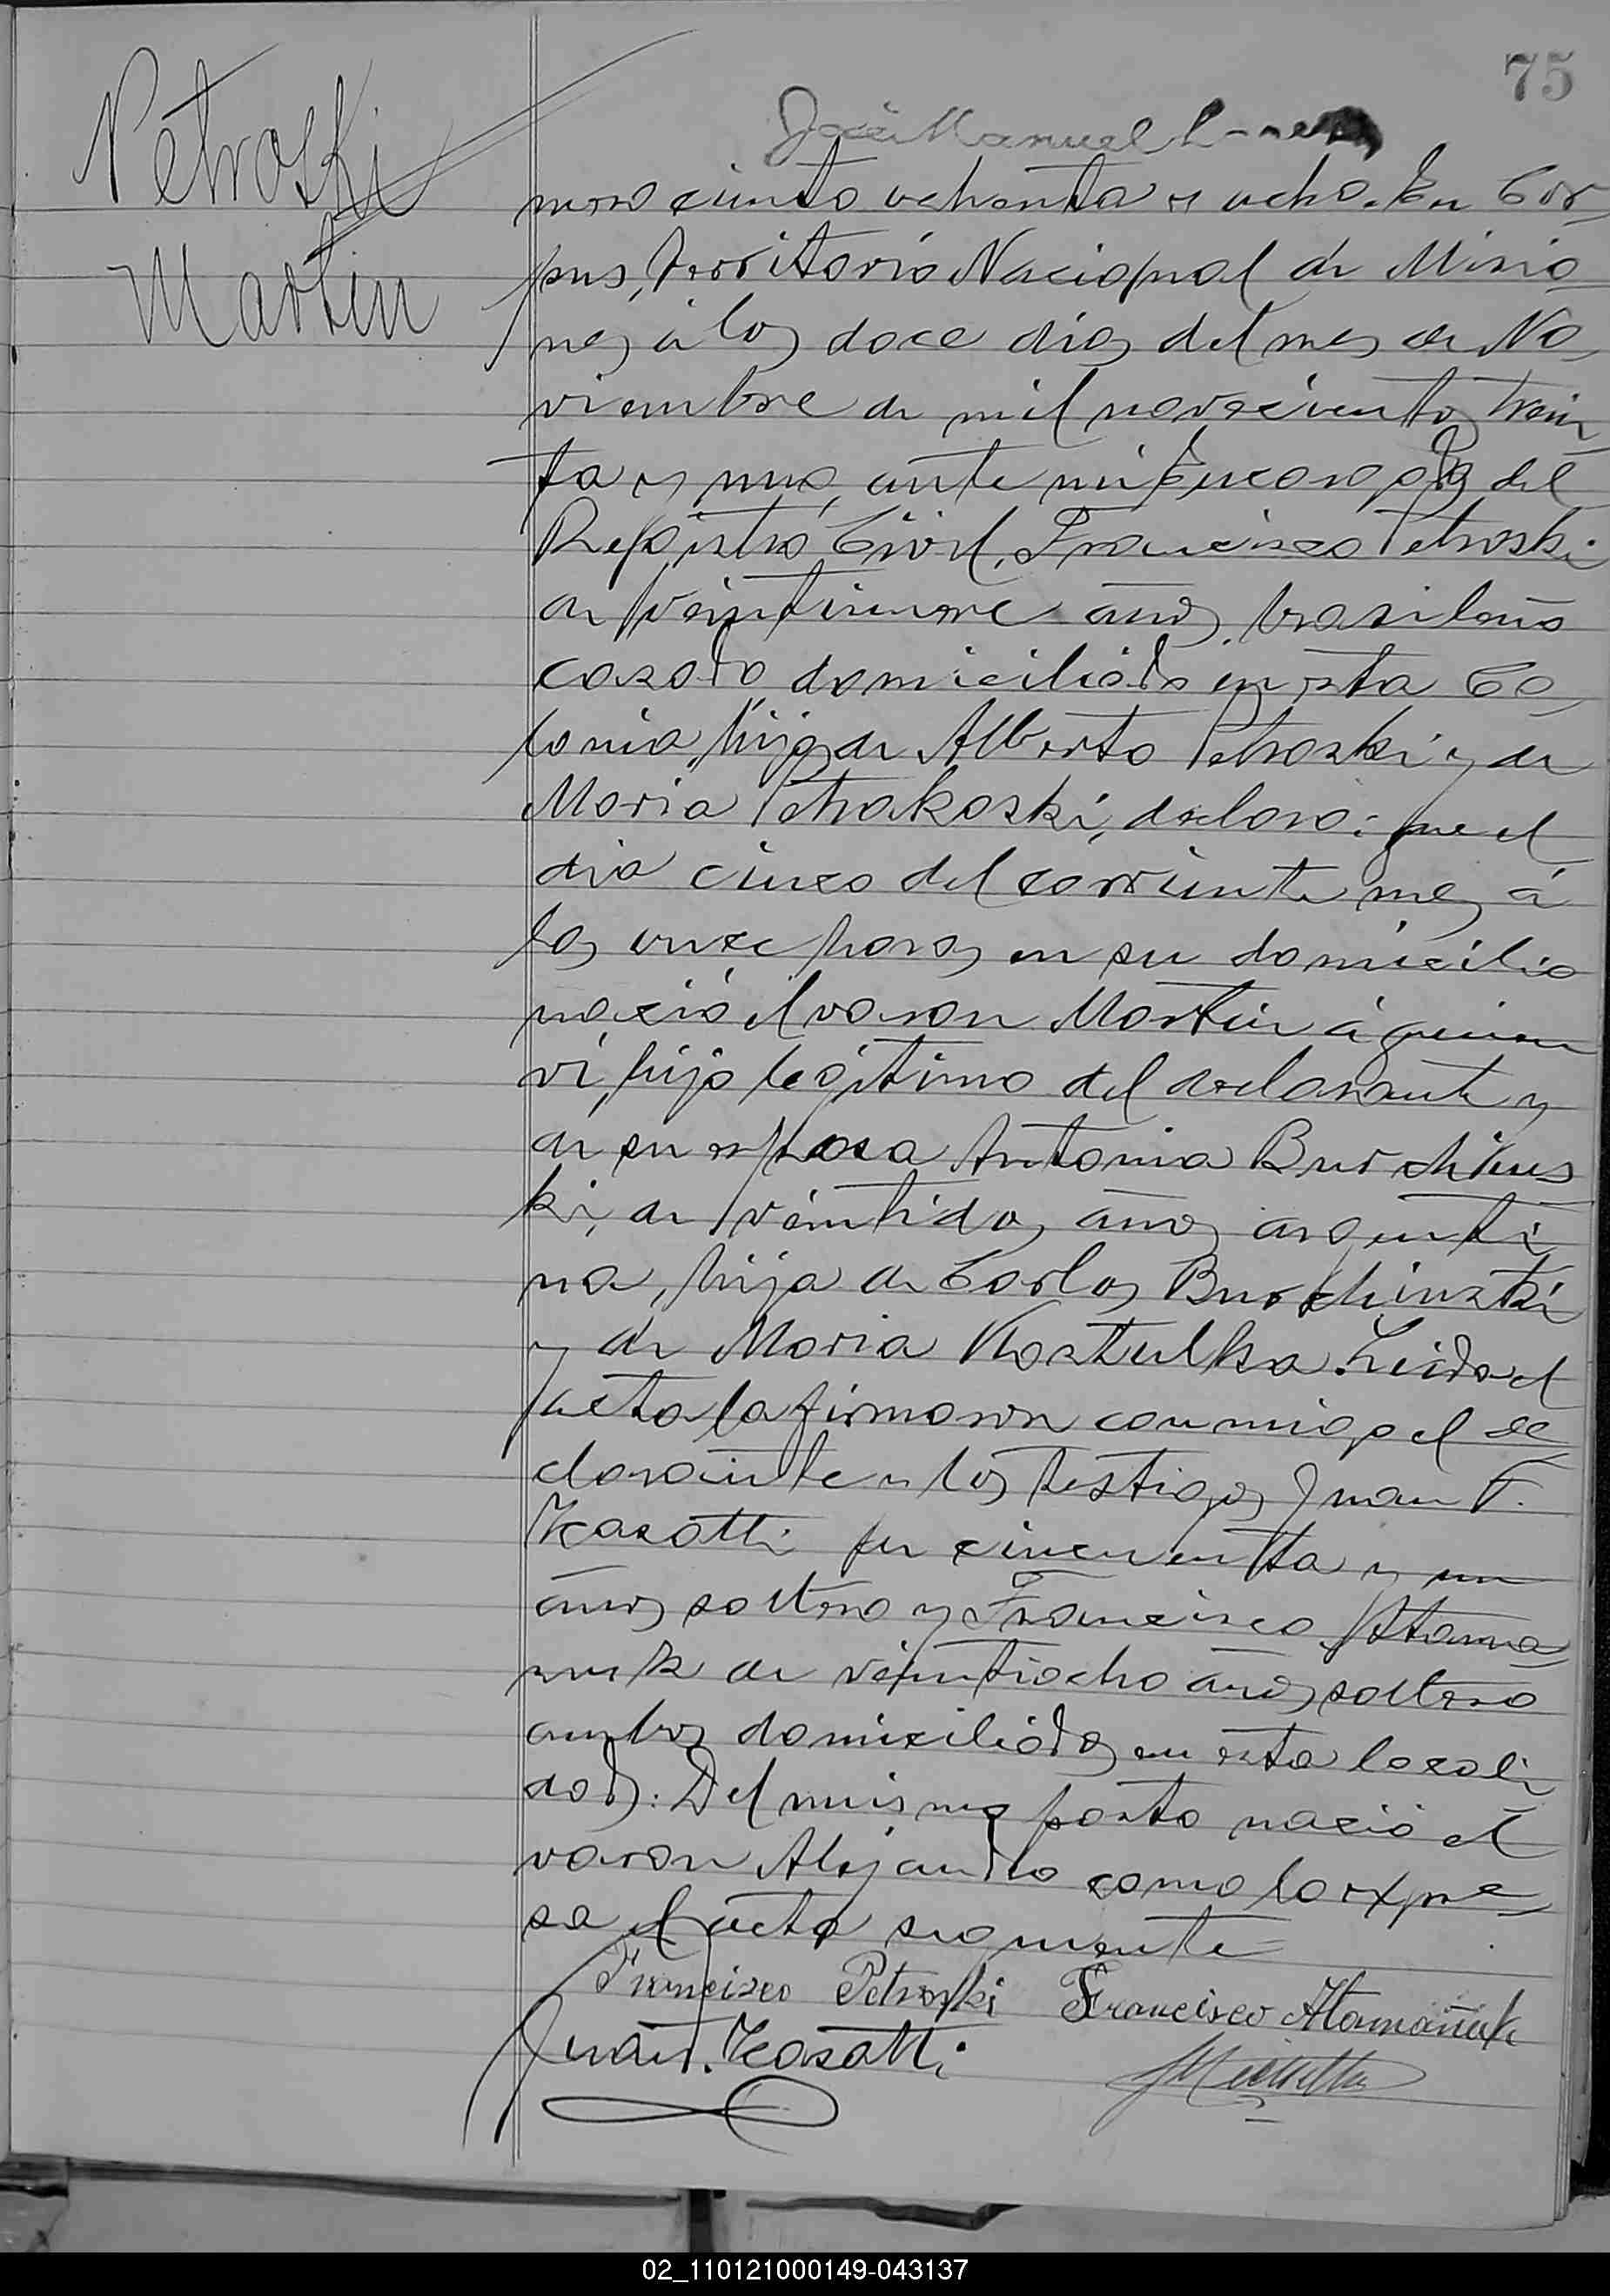 75
Petroski
Martin
José Manuel
mero ciento ochenta y ocho. En Cor-
pus, Territorio Nacional de Misio-
nes, á los doce dias del mes de No-
viembre de mil novecientos trein-
ta y uno, ante mi Encargado del
Registro Civil, Francisco Petroski
de veintinueve años, brasileño
casado, domiciliado en esta Co-
lonia, hijo de Alberto Petroski y de
Maria Petrakoski, declara: que el
dia cinco del corriente mes á
las once horas en su domicilio
nació el varon Martin á quien
vi, hijo legitimo del declarante y
de su esposa Antonia Burchins
ki, de veintidos años argenti-
na, hija de Carlos Burchinski
y de Maria Kostulka. Leida el
acta la firmaron conmigo el de-
clarante y los testigos Juan T.
Kasatti de cincuenta y un
años, soltero y Francisco Atama-
nuk de veintiocho años, soltero
ambos domiciliados en esta locali-
dad: Del mismo parto nació el
varon Alejandro como lo expre-
sa el acta siguiente
Francisco Petroski Francisco Atamañuk
Juan T. Kasatti
02_110121000149-043137